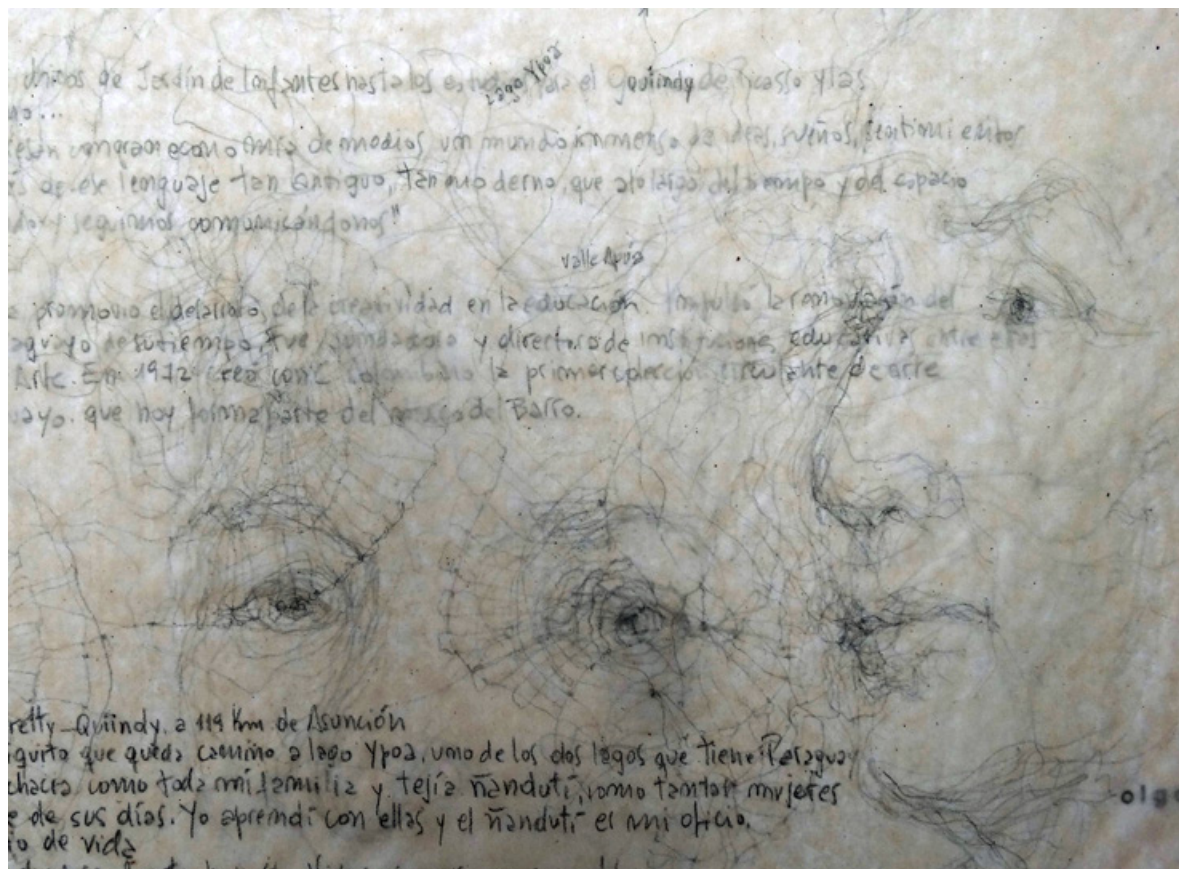 Lago Ypoa
dibujos de Jardín de Infantes hasta los estudios para el Quiindy de Picasso y las
no...
con gran economía de medios un mundo inmenso de ideas, sueños, sentimientos
de ese lenguaje tan antiguo, tan moderno, que a lo largo del tiempo y del espacio
y seguimos comunicándonos"
valle Apúa
promovió el desarrollo de la creatividad en la educación. Impulsó la renovación del
aguayo de su tiempo. Fue fundadora y directora de instituciones educativas entre ellas
Arte. En 1972 creó con C Colombino la primer colección circulante de arte
uayo. que hoy forma parte del museo del Barro.
retty_Quiindy. a 119 Km de Asunción
iguito que queda camino a lago Ypoa, uno de los dos lagos que tiene Paraguay
chacra como toda mi familia y tejía ñandutí, como tantas mujeres
e de sus días. Yo aprendí con ellas y el ñandutí es mi oficio,
io de vida
olga